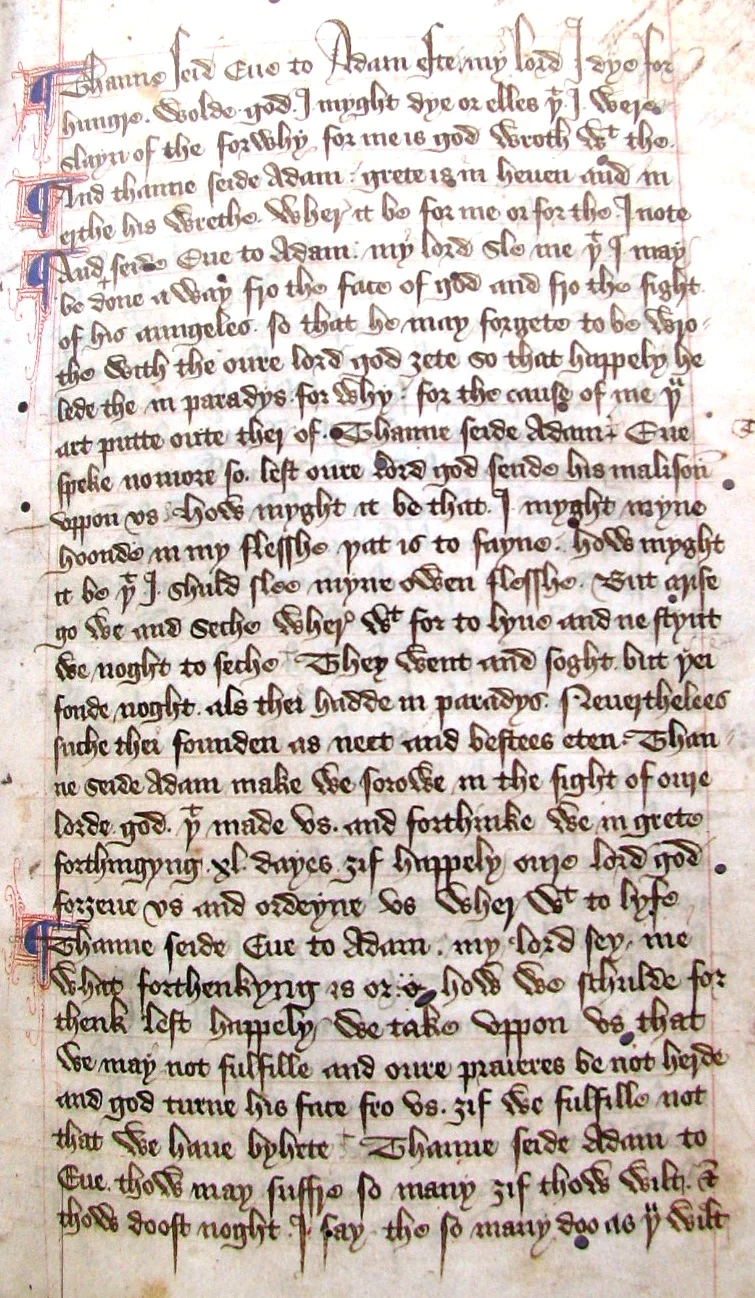 Thanne seid Eue to Adam este my lord I dye for
hungre. wolde god I myght dye or elles þͭ I were
slayn of the forwhy for me is god wroth wͭ the.
And thanne seide Adam : grete is in heuen and in
erthe his wrethe wher it be for me or for the I note
And seide Eue to Adam : my lord sle me þͭ I may
be done a way fro the face of god and fro the sight
of his aungeles. so that he may forgete to be wro-
the with the oure lord god ȝete so that happely he
lede the in paradys. for why : for the cause of me þͧ
art putte oute ther of. Thanne seide Adam : Eue
speke nomore so. lest oure lord god sende his malison
vppon vs. How myght it be that. I myght
hoonde in my flesshe þat is to sayne. how myght
it be þͭ I. shuld slee myne owen flesshe. But arise
go we and seche wher wͭ for to lyue and ne stynt
we noght to seche They went and soght. but þei
fonde noght. als thei hadde in paradys. Neuerthelees
suche thei founden as neet and bestees eten. Than
ne seide Adam make we sorowe in the sight of oure
lorde god. þͭ made vs. and forthinke we in grete
forthingyng .xl. dayes. ȝif happely oure lord god
forȝeue vs and ordeyne vs wher wͭ to lyfe
Thanne seide Eue to Adam. my lord sey me
what forthenkyng is or how we schulde for
thenk lest happely we take vppon vs that
we may not fulfille and oure praieres be not herde
and god turne his face fro vs. ȝif we fulfille not
that we haue byhete Thanne seide Adam to
Eue. thow may suffre so many ȝif thow wilt. &
thow doost noght. I say the so many doo as þͧ wilt